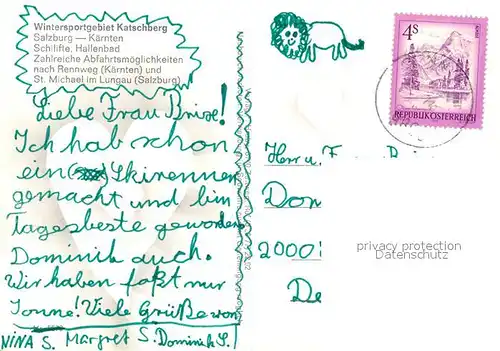 Wintersportgebiet Katschberg
Salzburg — Kärnten
Schilifte, Hallenbad
Zahlreiche Abfahrtsmöglichkeiten
nach Rennweg (Kärnten) und
St. Michael im Lungau (Salzburg)
Liebe Frau Brixe!
Ich hab schon
ein Skirennen
gemacht und bin
Tagesbeste geworden
Dominik auch.
Wir haben faßt nur
Sonne! Viele Grüße von
NINA S. Margret S. Dominik S.!
4S
REPUBLIK ÖSTERREICH
Herr u. F
Don
2000
De
privacy protection
Datenschutz